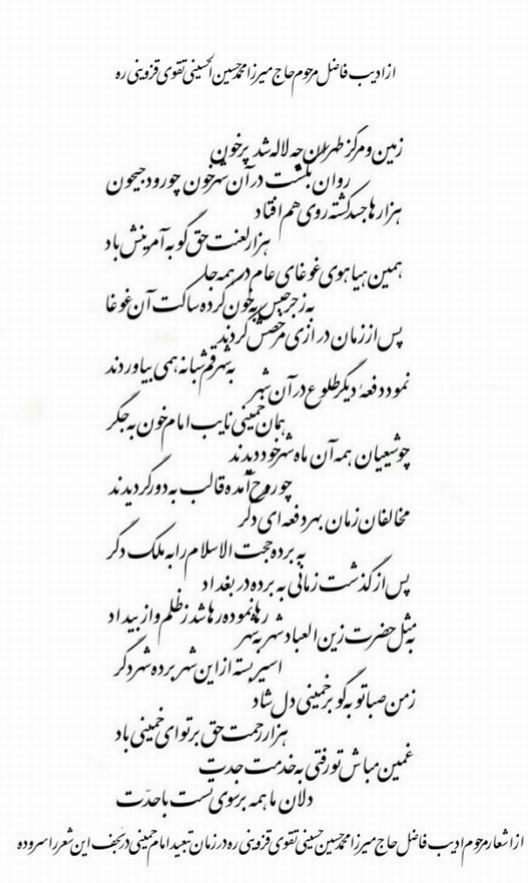 از ادیب فاضل مرحوم حاج میرزا محمد حسین الحسینی تقوی قزوینی ره
زمین و مرکز طهران چه لاله شد پرخون
روان بگشت در آن شهر خون چو رود جیحون
هزارها جسد کشته روی هم افتاد
هزار لعنت حق گو به آمرینش باد
همین هیاهوی غوغای عام در همه جا
به زجر حبس به خون کرده ساکت آن غوغا
پس از زمان درازی مرخصش کردند
به شهر قم شبانه همی بیاوردند
نمود دفعهٔ دیگر طلوع در آن شهر
همان خمینی نایب امام خون به جگر
چو شیعیان همه آن ماه شهر خود دیدند
چو روح آمده قالب به دور گردیدند
مخالفان زمان بهر دفعه ای دگر
به برده حجت الاسلام را به ملک دگر
پس از گذشت زمانی به برده در بغداد
رها نموده رها شد ز ظلم و از بیداد
به مثل حضرت زین العباد شهر به شهر
اسیر بسته از این شهر برده شهر دگر
ز من صبا تو به گو بر خمینی دل شاد
هزار رحمت حق بر تو ای خمینی باد
غمین مباش تو رفتی به خدمت جدت
دلان ما همه بر سوی تست با حدّت
از اشعار مرحوم ادیب فاضل حاج میرزا محمد حسین حسینی تقوی قزوینی ره در زمان تبعید امام خمینی در نجف این شعر را سروده